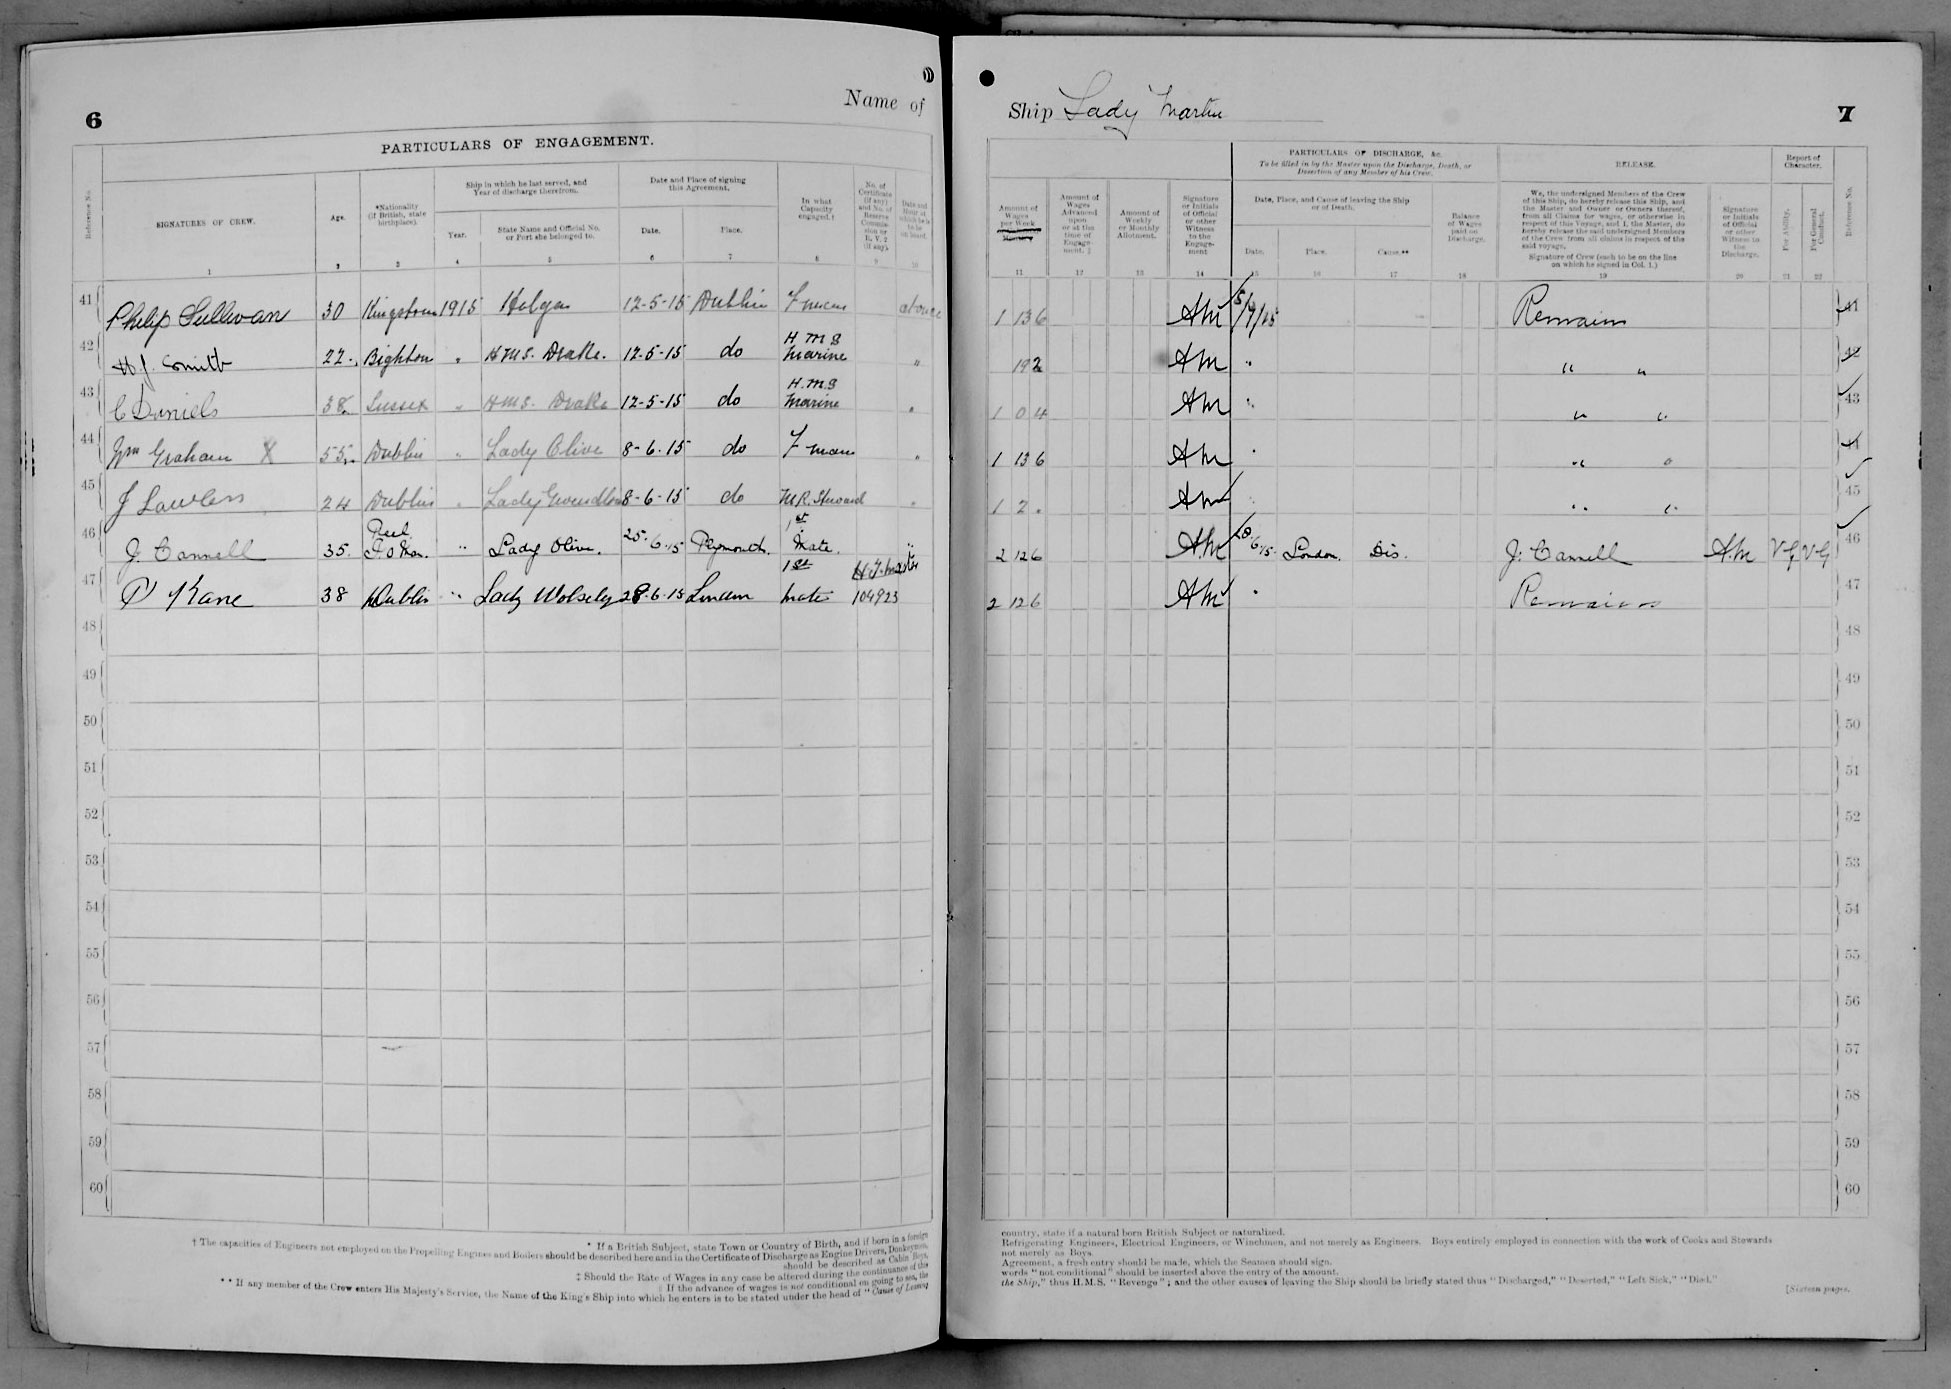 6
Name of
PARTICULARS OF ENGAGEMENT.
Reference No.
SIGNATURES OF CREW.
Age.
*Nationality (if British, state birthplace).
Ship in which he last served, and Year of discharge therefrom.
Year.
State Name and Official No. or Port she belonged to.
Date and Place of signing this Agreement.
Date.
Place.
In what Capacity engaged.†
No. of Certificate (if any) and No. of Reserve Commission or R.V. 2 (if any).
Date and Hour at which he is to be on board.
1 2 3 4 5 6 7 8 9 10
41 Philip Sullivan 30 Kingstown 1915 12-5-15 Dublin F'man at once
42 H.J. Smith 22 Bighton " H.M.S. Drake. 12-5-15 do H M S Marine "
43 C Daniels 38 Sussex " H.M.S. Drake 12-5-15 do H.M.S Marine "
44 Wm Graham X 55 Dublin " Lady Olive 8-6-15 do F'man "
45 J Lawless 24 Dublin " Lady Gwendolen 8-6-15 do M.R. Steward "
46 J. Cannell 35 Peel I.O Man. " Lady Olive. 25-6-15 Plymouth. 1st Mate. "
47 P Kane 38 Dublin " Lady Wolseley 28-6-15 London 1st Mate 104923
48
49
50
51
52
53
54
55
56
57
58
59
60
* If a British Subject, state Town or Country of Birth, and if born in a foreign
† The capacities of Engineers not employed on the Propelling Engines and Boilers should be described here and in the Certificate of Discharge as Engine Drivers, Donkeymen,
should be described as Cabin Boys,
‡ Should the Rate of Wages in any case be altered during the continuance of this
‖ If the advance of wages is not conditional on going to sea, the
** If any member of the Crew enters His Majesty's Service, the Name of the King's Ship into which he enters is to be stated under the head of "Cause of Leaving
Ship Lady Martin
7
Amount of Wages per Week
Amount of Wages Advanced upon or at the time of Engagement.
Amount of Weekly or Monthly Allotment.
Signature or Initials of Official or other Witness to the Engagement
PARTICULARS OF DISCHARGE, &c.
To be filled in by the Master upon the Discharge, Death, or Desertion of any Member of his Crew.
Date, Place, and Cause of leaving the Ship or of Death.
Date.
Place.
Cause.**
Balance of Wages paid on Discharge.
RELEASE.
We, the undersigned Members of the Crew of this Ship, do hereby release this Ship, and the Master and Owner or Owners thereof, from all Claims for wages, or otherwise in respect of this Voyage, and I, the Master, do hereby release the said undersigned Members of the Crew from all claims in respect of the said voyage.
Signature of Crew (each to be on the line on which he signed in Col. 1.)
Signature or Initials of Official or other Witness to the Discharge.
Report of Character.
For Ability.
For General Conduct.
Reference No.
11 12 13 14 15 16 17 18 19 20 21 22
1 13 6 AM Remains 41
19 2 AM " " " 42
1 0 4 AM " " " 43
1 13 6 AM " " " 44
1 2 . AM " " 45
2 12 6 AM 28-6-15 London. Dis. J. Cannell A.M V.G V.G 46
2 12 6 AM " Remains 47
48
49
50
51
52
53
54
55
56
57
58
59
60
country, state if a natural born British Subject or naturalized.
Refrigerating Engineers, Electrical Engineers, or Winchmen, and not merely as Engineers. Boys entirely employed in connection with the work of Cooks and Stewards
not merely as Boys.
Agreement, a fresh entry should be made, which the Seamen should sign.
words "not conditional" should be inserted above the entry of the amount.
the Ship," thus H.M.S. "Revenge"; and the other causes of leaving the Ship should be briefly stated thus "Discharged," "Deserted," "Left Sick," "Died."
[Sixteen pages.